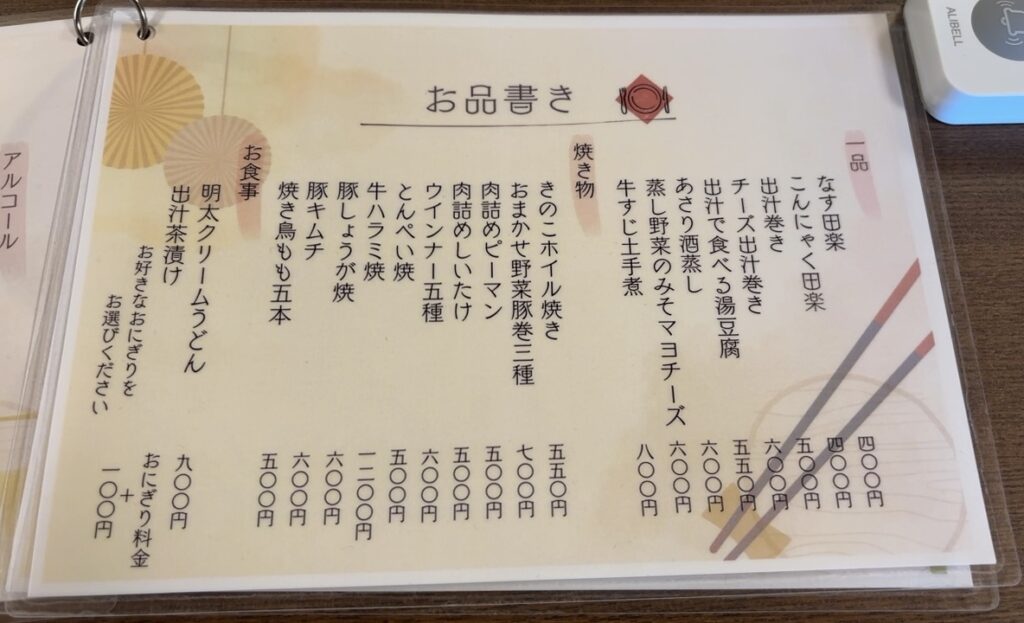 お品書き
一品
なす田楽 四〇〇円
こんにゃく田楽 四〇〇円
出汁巻き 五〇〇円
チーズ出汁巻き 六〇〇円
出汁で食べる湯豆腐 五五〇円
あさり酒蒸し 六〇〇円
蒸し野菜のみそマヨチーズ 六〇〇円
牛すじ土手煮 八〇〇円
焼き物
きのこホイル焼き 五五〇円
おまかせ野菜豚巻三種 七〇〇円
肉詰めピーマン 五〇〇円
肉詰めしいたけ 五〇〇円
ウインナー五種 六〇〇円
とんぺい焼 五〇〇円
牛ハラミ焼 一二〇〇円
豚しょうが焼 六〇〇円
豚キムチ 六〇〇円
焼き鳥もも五本 五〇〇円
お食事
明太クリームうどん 九〇〇円
出汁茶漬け おにぎり料金
+
一〇〇円
お好きなおにぎりを
お選びください
アルコール
ALIBELL